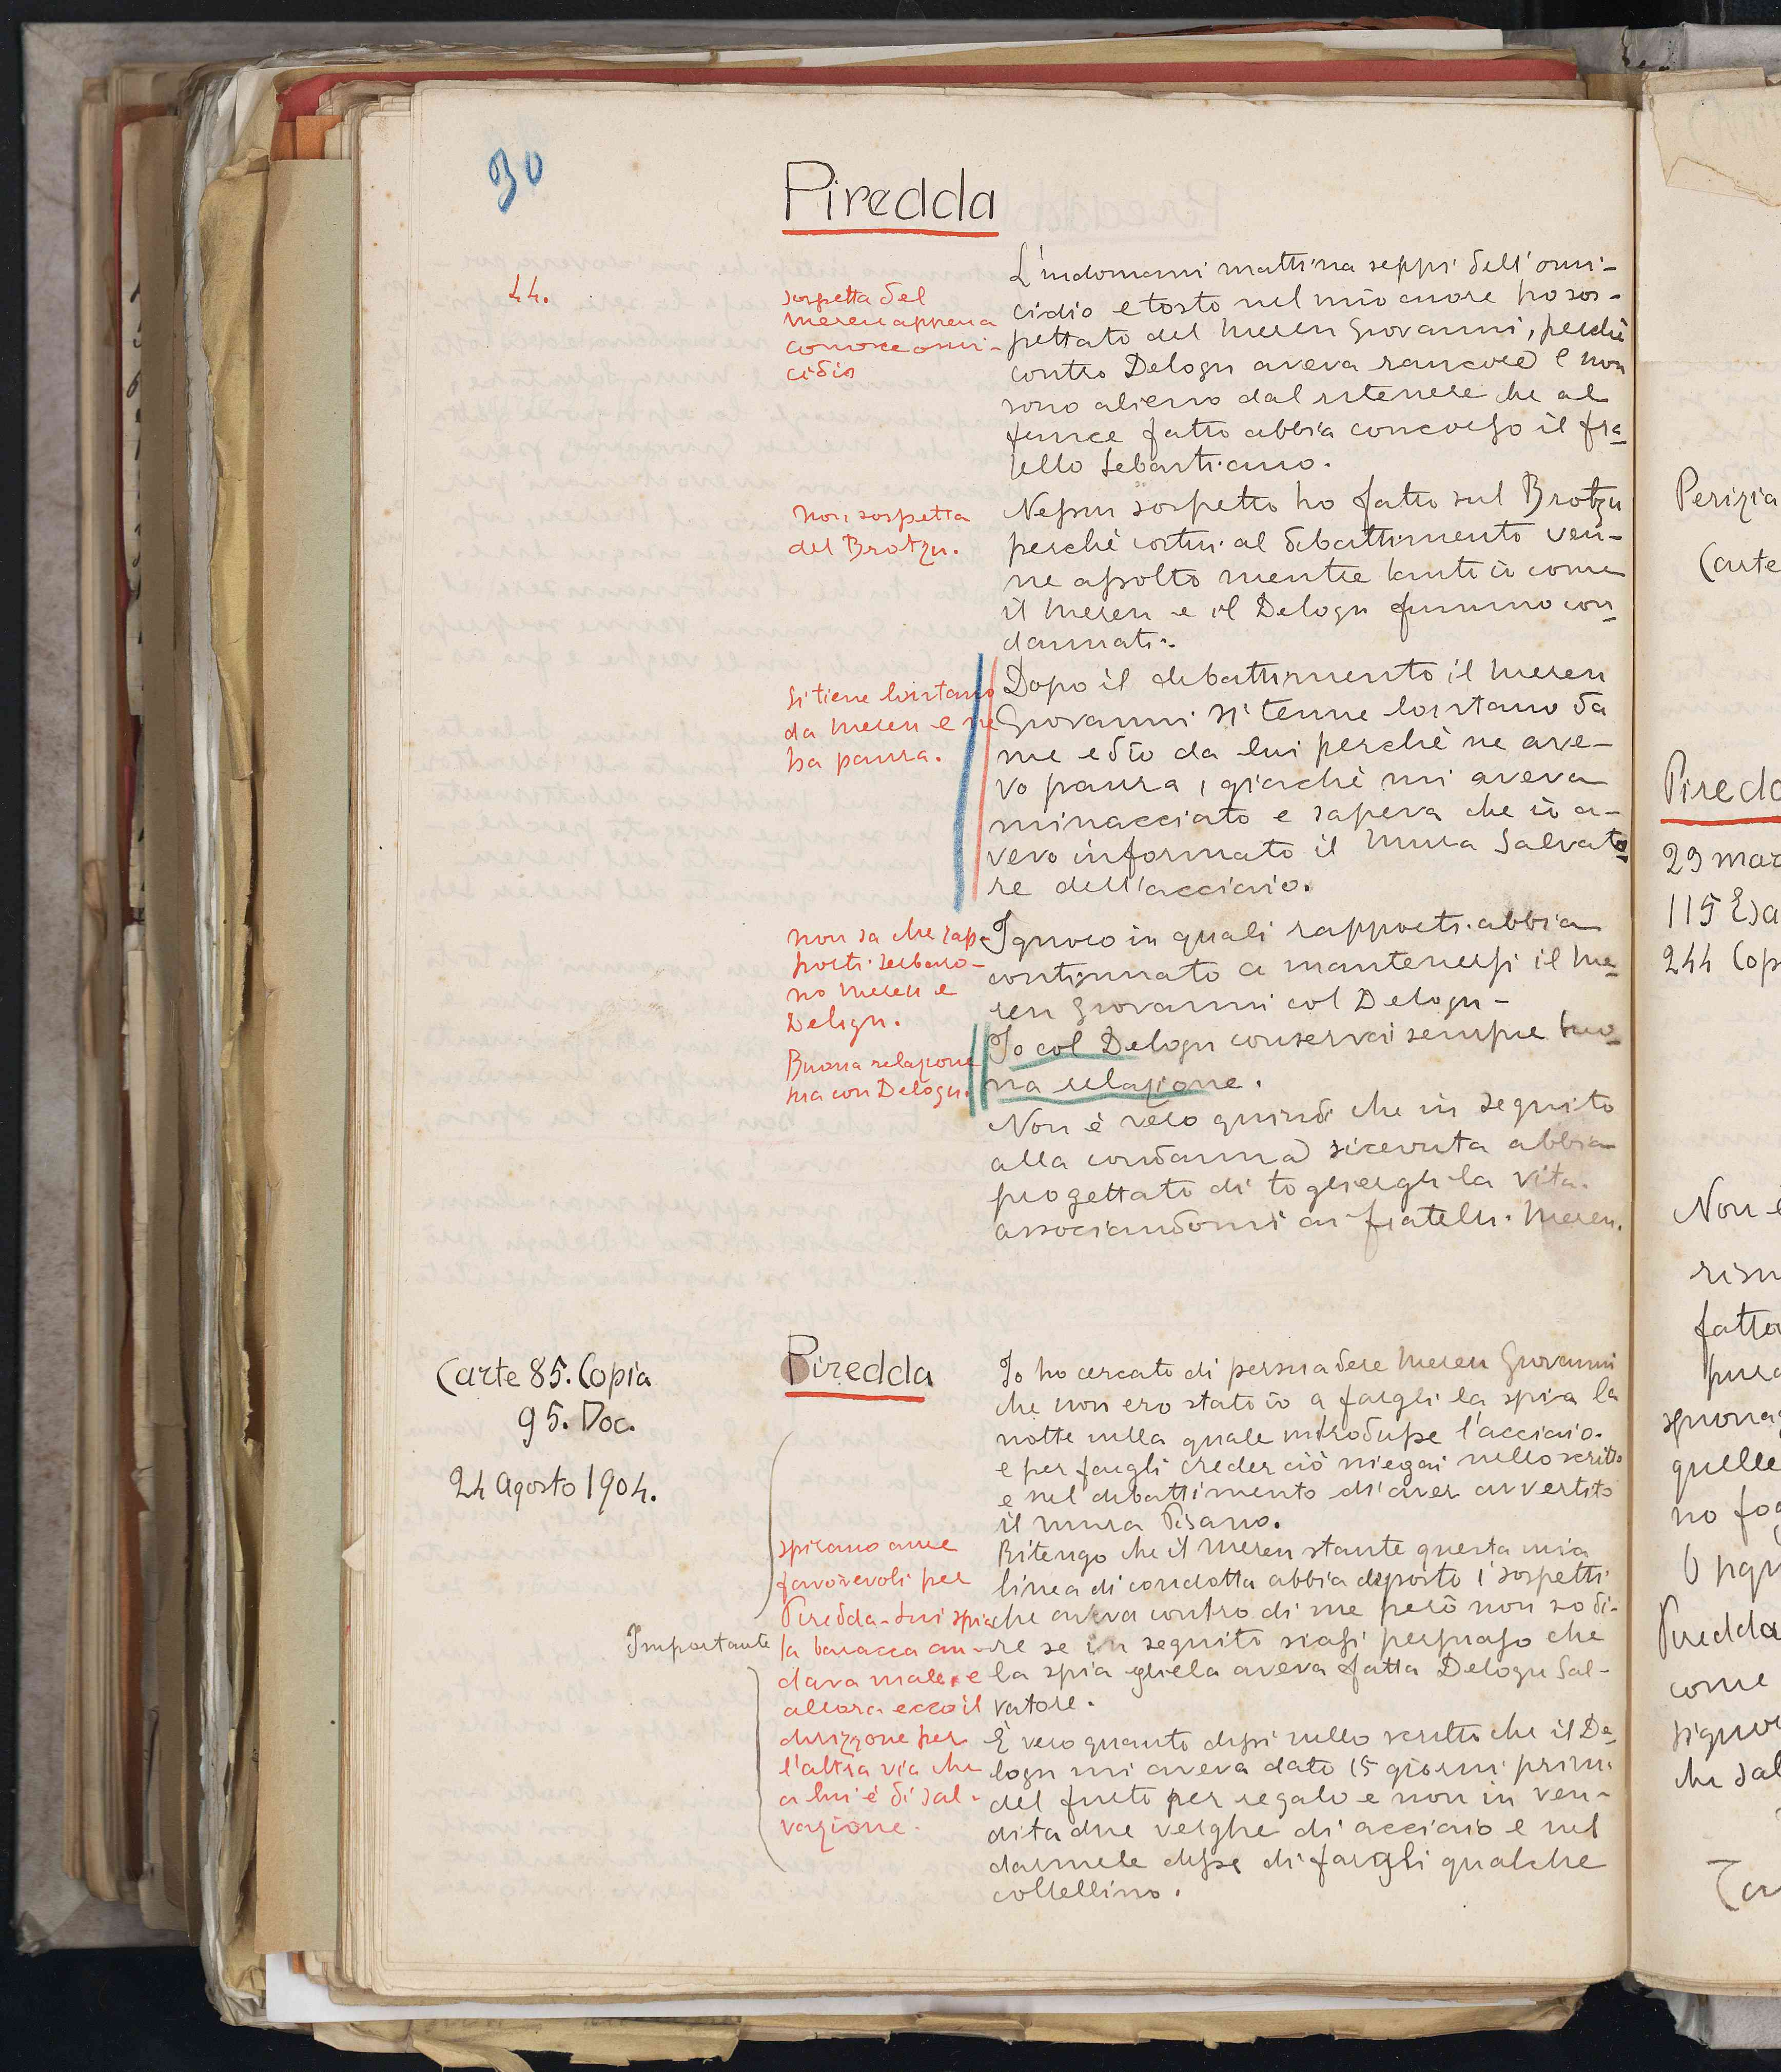 30
Piredda
44.
sospetta del
Mereu appena
conosce omi-
cidio
L'indomani mattina seppi dell'omi-
cidio e tosto nel mio cuore ho sos-
pettato del Mereu Giovanni, perchè
contro Delogu aveva rancore e non
sono alieno dal ritenere che al
truce fatto abbia concorso il fra
tello Sebastiano.
non sospetta
del Brotzu.
Nessun sospetto ho fatto sul Brotzu
perchè costui al dibattimento ven-
ne assolto mentre tanto io come
il Mereu e il Delogu fummo con
dannati.
si tiene lontano
da Mereu e ne
ha paura.
Dopo il dibattimento il Mereu
Giovanni si tenne lontano da
me ed io da lui perchè ne ave-
vo paura, giacchè mi aveva
minacciato e sapeva che io a-
vevo informato il Mura Salvato
re dell'acciaio.
non sa che rap-
porti serbaro-
no Mereu e
Delogu.
Ignoro in quali rapporti abbia
continuato a mantenersi il Me
reu Giovanni col Delogu-
Buona relazione
ma con Delogu.
Io col Delogu conservai sempre buo
na relazione.
Non è vero quindi che in seguito
alla condanna ricevuta abbia
progettato di togliergli la vita
associandomi ai fratelli Mereu.
Carte 85. Copia
95. Doc.
24 Agosto 1904.
Piredda
Io ho cercato di persuadere Mereu Giovanni
che non ero stato io a fargli la spia la
notte nella quale introdusse l'acciaio.
e per fargli creder ciò niegai nello scritto
e nel dibattimento di aver avvertito
il Mura Pisano.
Importante
spirano aure
favorevoli per
Piredda-Lui spia
la baracca an-
dava male, e
allora ecco il
dirizzone per
l'altra via che
a lui è di sal-
vazione.
Ritengo che il Mereu stante questa mia
linea di condotta abbia deposto i sospetti
che aveva contro di me però non so di-
re se in seguito siasi persuaso che
la spia gliela aveva fatta Delogu Sal-
vatore.
È vero quanto dissi nello scritto che il De
logu mi aveva dato 15 giorni prima
del furto per regalo e non in ven-
dita due verghe di acciaio e nel
darmele disse di fargli qualche
coltellino.
Perizia
(arte
29 mar
115 Esa
244 Cop
Non è
fatto
quelle
Piredda
come